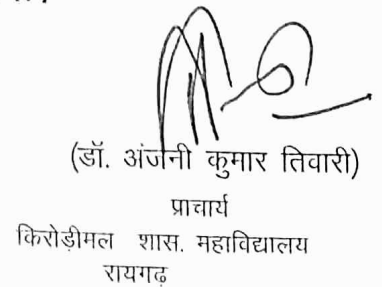 (डॉ. अंजनी कुमार तिवारी)
प्राचार्य
किरोड़ीमल शास. महाविद्यालय
रायगढ़